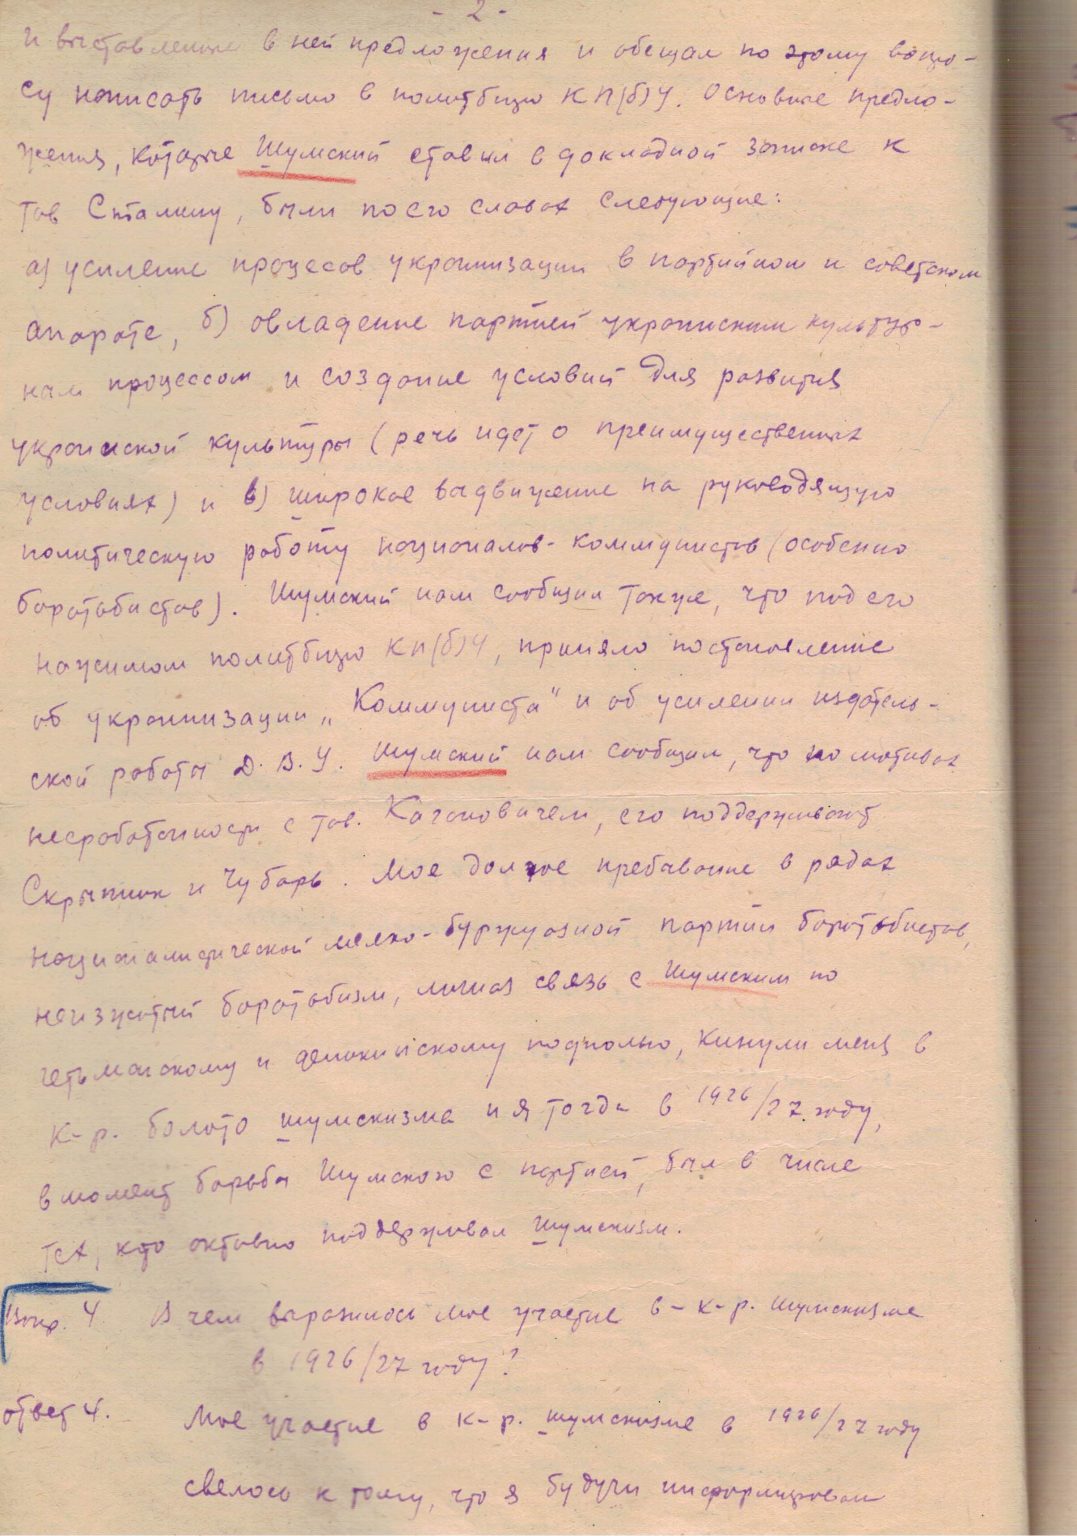 - 2 -
и выставленные в ней предложения и обещал по этому вопро-
су написать письмо в политбюро КП(б)У. Основные предло-
жения, которые Шумский ставил в докладной записке к
тов Сталину, были по его словах следующие:
а) усиление процесов украинизации в партийном и советском
апарате, б) овладение партией украинским культур-
ным процессом и создание условий для развития
украинской культуры (речь идет о преимущественных
условиях) и в) широкое выдвижение на руководящую
политическую работу националов-коммунистов (особенно
боротьбистов). Шумский нам сообщил также, что под его
нажимом политбюро КП(б)У, приняло постановление
об украинизации „Коммуниста" и об усилении издатель-
ской работы Д.В.У. Шумский нам сообщил, что по мотивах
несработанности с тов. Кагановичем, его поддерживают
Скрыпник и Чубарь. Мое долгое пребывание в рядах
националистической мелко-буржуазной партии боротьбистов,
неизжитый боротьбизм, личная связь с Шумским по
гетьманскому и деникинскому подполью, кинули меня в
к-р. болото шумскизма и я тогда в 1926/27 году,
в момент борьбы Шумского с партией, был в числе
тех, кто активно поддерживал шумскизм.
Вопр. 4 В чем выразилось мое участие в - к-р. шумскизме
в 1926/27 году?
ответ 4. Мое участие в к-р. шумскизме в 1926/27 году
свелось к тому, что я будучи информирован